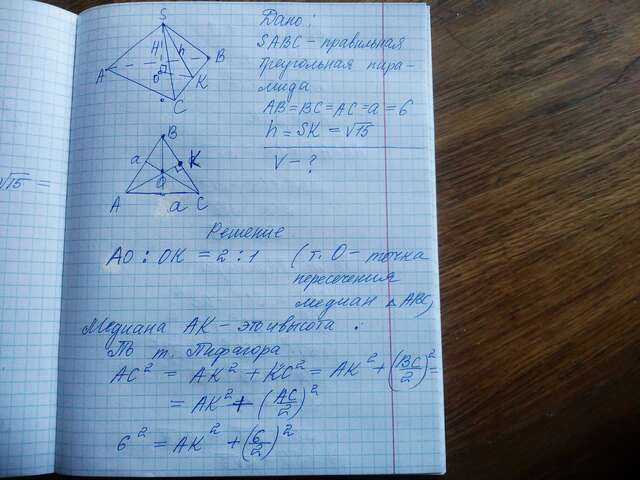 S
H
h
B
A
O
K
C
Дано:
SABC – правильная
треугольная пира-
мида
AB = BC = AC = a = 6
h = SK = √15
V – ?
B
a
K
O
A
a
C
√15 =
Решение
AO : OK = 2 : 1 (т. O – точка
пересечения
медиан △ ABC)
Медиана AK – это и высота :
По т. Пифагора
AC² = AK² + KC² = AK² + (BC/2)² =
= AK² + (AC/2)²
6² = AK² + (6/2)²